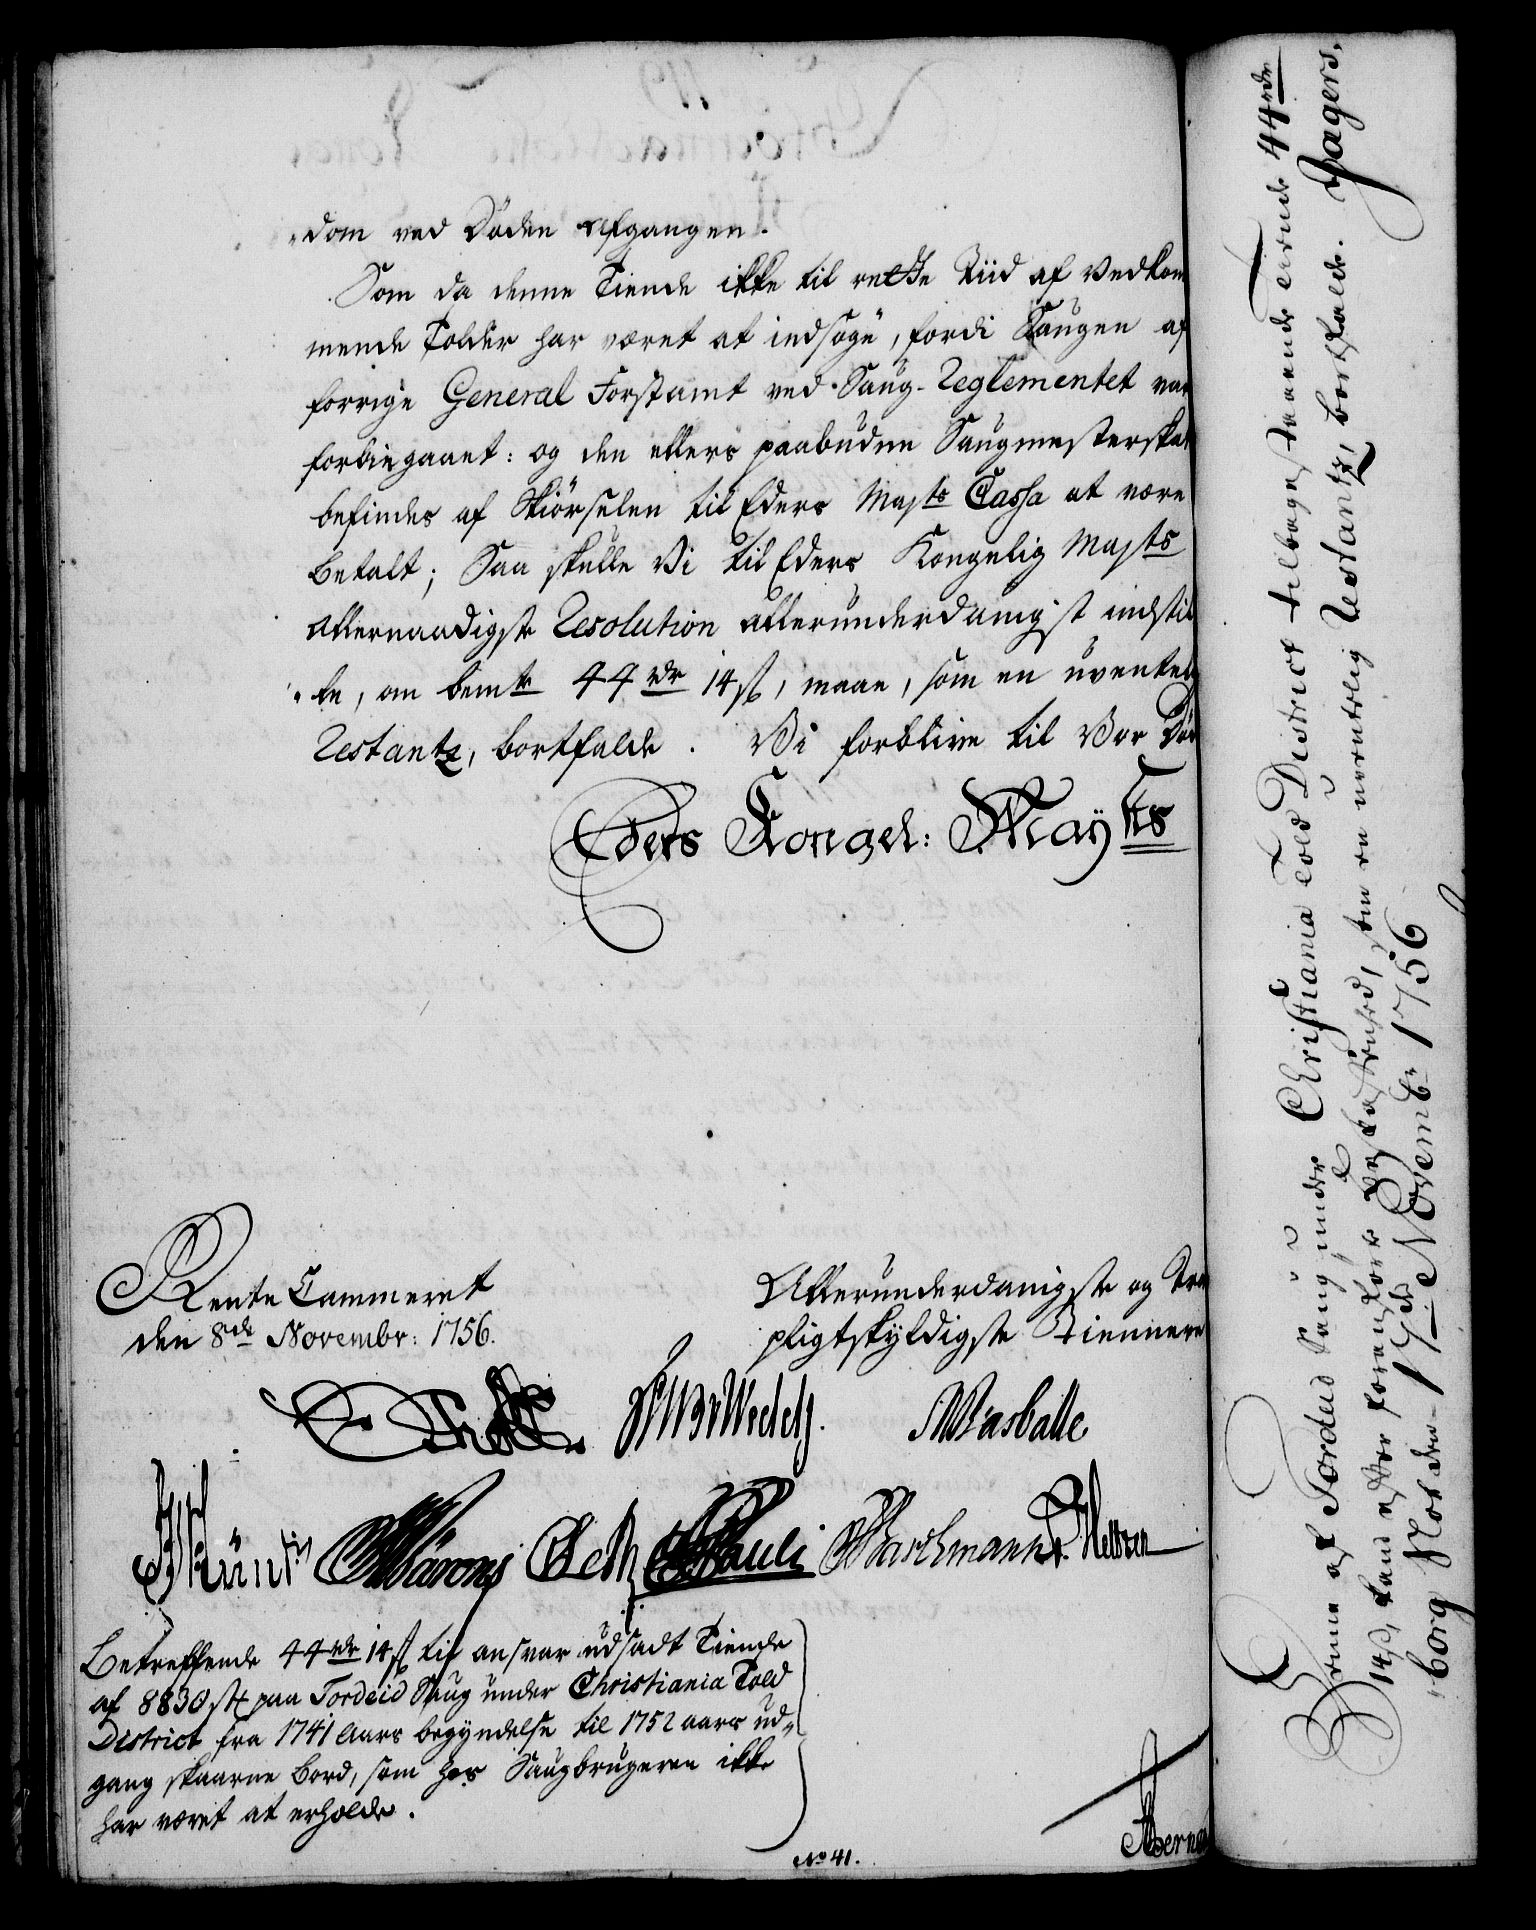 dom ved Døden afgangen.
Som da denne Tiende ikke til rette Tiid af Vedkom
mende Tolder har været at indsøge, fordi Saugen af
forrige General Forstamt ved Saug-Reglementet var
forbiegaaet: og den ellers paabudne Saugmesterskat
befindes af Skiørselen til Eders Maj\ts Cassa at være
betalt; Saa skulle Vi til Eders Kongelig Maj\ts
allernaadigste Resolution allerunderdanigst indstil
le, om bem\te 44 rdr 14 s, maae, som en uventelig
Restantz, bortfalde. Vi forblive til Vor Død
Eders Kongel: May\ts
Rente Cammeret
den 8de Novembr: 1756.
Allerunderdanigste og Troe
pligtskyldigste Tiennere
Wasballe
Pauli Barchmann
Betreffende 44 rdr 14 s til ansvar udsadt Tiende
af 8830 stk paa Tordeid Saug under Christiania Told
District fra 1741 Aars begyndelse til 1752 aars ud-
gang skaarne Bord, som hos Saugbrugeren ikke
har været at erholde.
No 41.
Denne af Tordeid Saug under Christiania Told District tilbagestaaende Tiende 44 rdr
14 s, kand efter forestaaende beskaffenhed, som en uventelig Restantz, bortfalde. Jagers-
borg Slot den 17de Novembr 1756